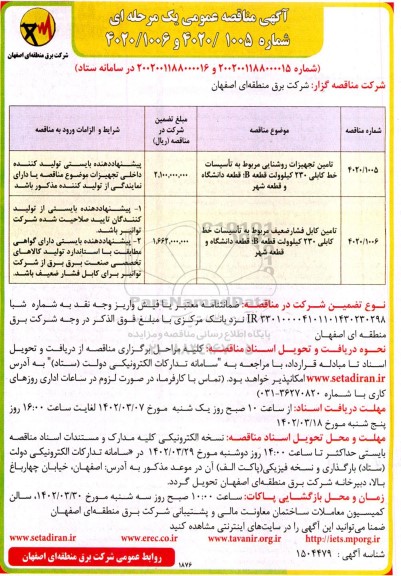 آگهی مناقصه عمومی یک مرحله ای
شماره ۱۰۰۵ /۴۰۲۰ و ۴۰۲۰/۱۰۰۶
شرکت برق منطقه‌ای اصفهان
(شماره ۲۰۰۲۰۰۱۱۸۸۰۰۰۰۱۵ و ۲۰۰۲۰۰۱۱۸۸۰۰۰۰۱۶ در سامانه ستاد)
شرکت مناقصه گزار: شرکت برق منطقه‌ای اصفهان
شماره مناقصه
موضوع مناقصه
مبلغ تضمین شرکت در مناقصه (ریال)
شرایط و الزامات ورود به مناقصه
۴۰۲۰/۱۰۰۵
تامین تجهیزات روشنایی مربوط به تأسیسات
خط کابلی ۲۳۰ کیلوولت قطعه B: قطعه دانشگاه
و قطعه شهر
۲،۱۰۰،۰۰۰،۰۰۰
پیشنهاددهنده بایستی تولید کننده
داخلی تجهیزات موضوع مناقصه یا دارای
نمایندگی از تولید کننده مذکور باشد
۴۰۲۰/۱۰۰۶
تامین کابل فشارضعیف مربوط به تأسیسات خط
کابلی ۲۳۰ کیلوولت قطعه B: قطعه دانشگاه و
قطعه شهر
۱،۶۶۲،۰۰۰،۰۰۰
۱- پیشنهاددهنده بایستی از تولید
کنندگان تایید صلاحیت شده شرکت
توانیر باشد.
۲- پیشنهاددهنده بایستی دارای گواهی
مطابقت با استاندارد تولید کالاهای
تخصصی صنعت برق برق از شرکت
توانیر برای کابل فشار ضعیف باشد.
نوع تضمین شرکت در مناقصه: ضمانتنامه معتبر یا فیش واریز وجه نقد به شماره شبا
IR ۳۳۰۱۰۰۰۰۴۱۰۱۱۰۱۴۳۰۲۳۰۲۹۸ نزد بانک مرکزی با مبلغ فوق الذکر در وجه شرکت برق
منطقه ای اصفهان
نحوه دریافت و تحویل اسناد مناقصه: کلیه مراحل برگزاری مناقصه از دریافت و تحویل
اسناد تا مبادله قرارداد، با مراجعه به "سامانه تدارکات الکترونیکی دولت (ستاد)" به آدرس
www.setadiran.ir امکانپذیر خواهد بود. (تماس با کارفرما، در صورت لزوم در ساعات اداری روزهای
کاری با شماره ۳۶۲۷۰۸۲۰-۰۳۱)
مهلت دریافت اسناد: از ساعت ۱۰ صبح روز یک شنبه مورخ ۱۴۰۲/۰۳/۰۷ لغایت ساعت ۱۶:۰۰ روز
پنج شنبه مورخ ۱۴۰۲/۰۳/۱۸
مهلت و محل تحویل اسناد مناقصه: نسخه الکترونیکی کلیه مدارک و مستندات اسناد مناقصه
بایستی حداکثر تا ساعت ۱۴:۰۰ روز دوشنبه مورخ ۱۴۰۲/۰۳/۲۹ در سامانه تدارکات الکترونیکی دولت
(ستاد) بارگذاری و نسخه فیزیکی(پاکت الف) آن در موعد مذکور به آدرس: اصفهان، خیابان چهارباغ
بالا، دبیرخانه شرکت برق منطقه‌ای اصفهان تحویل گردد.
زمان و محل بازگشایی پاکات: ساعت ۱۰:۰۰ صبح روز سه شنبه مورخ ۱۴۰۲/۰۳/۳۰، سالن
کمیسیون معاملات ساختمان معاونت مالی و پشتیبانی شرکت برق منطقه‌ای اصفهان
ضمنا می‌توانید این آگهی را در سایت‌های اینترنتی مشاهده کنید
http://iets.mporg.ir www.tavanir.org.ir www.erec.co.ir www.setadiran.ir
شناسه آگهی : ۱۵۰۴۴۷۹
۱۸۷۶
روابط عمومی شرکت برق منطقه‌ای اصفهان